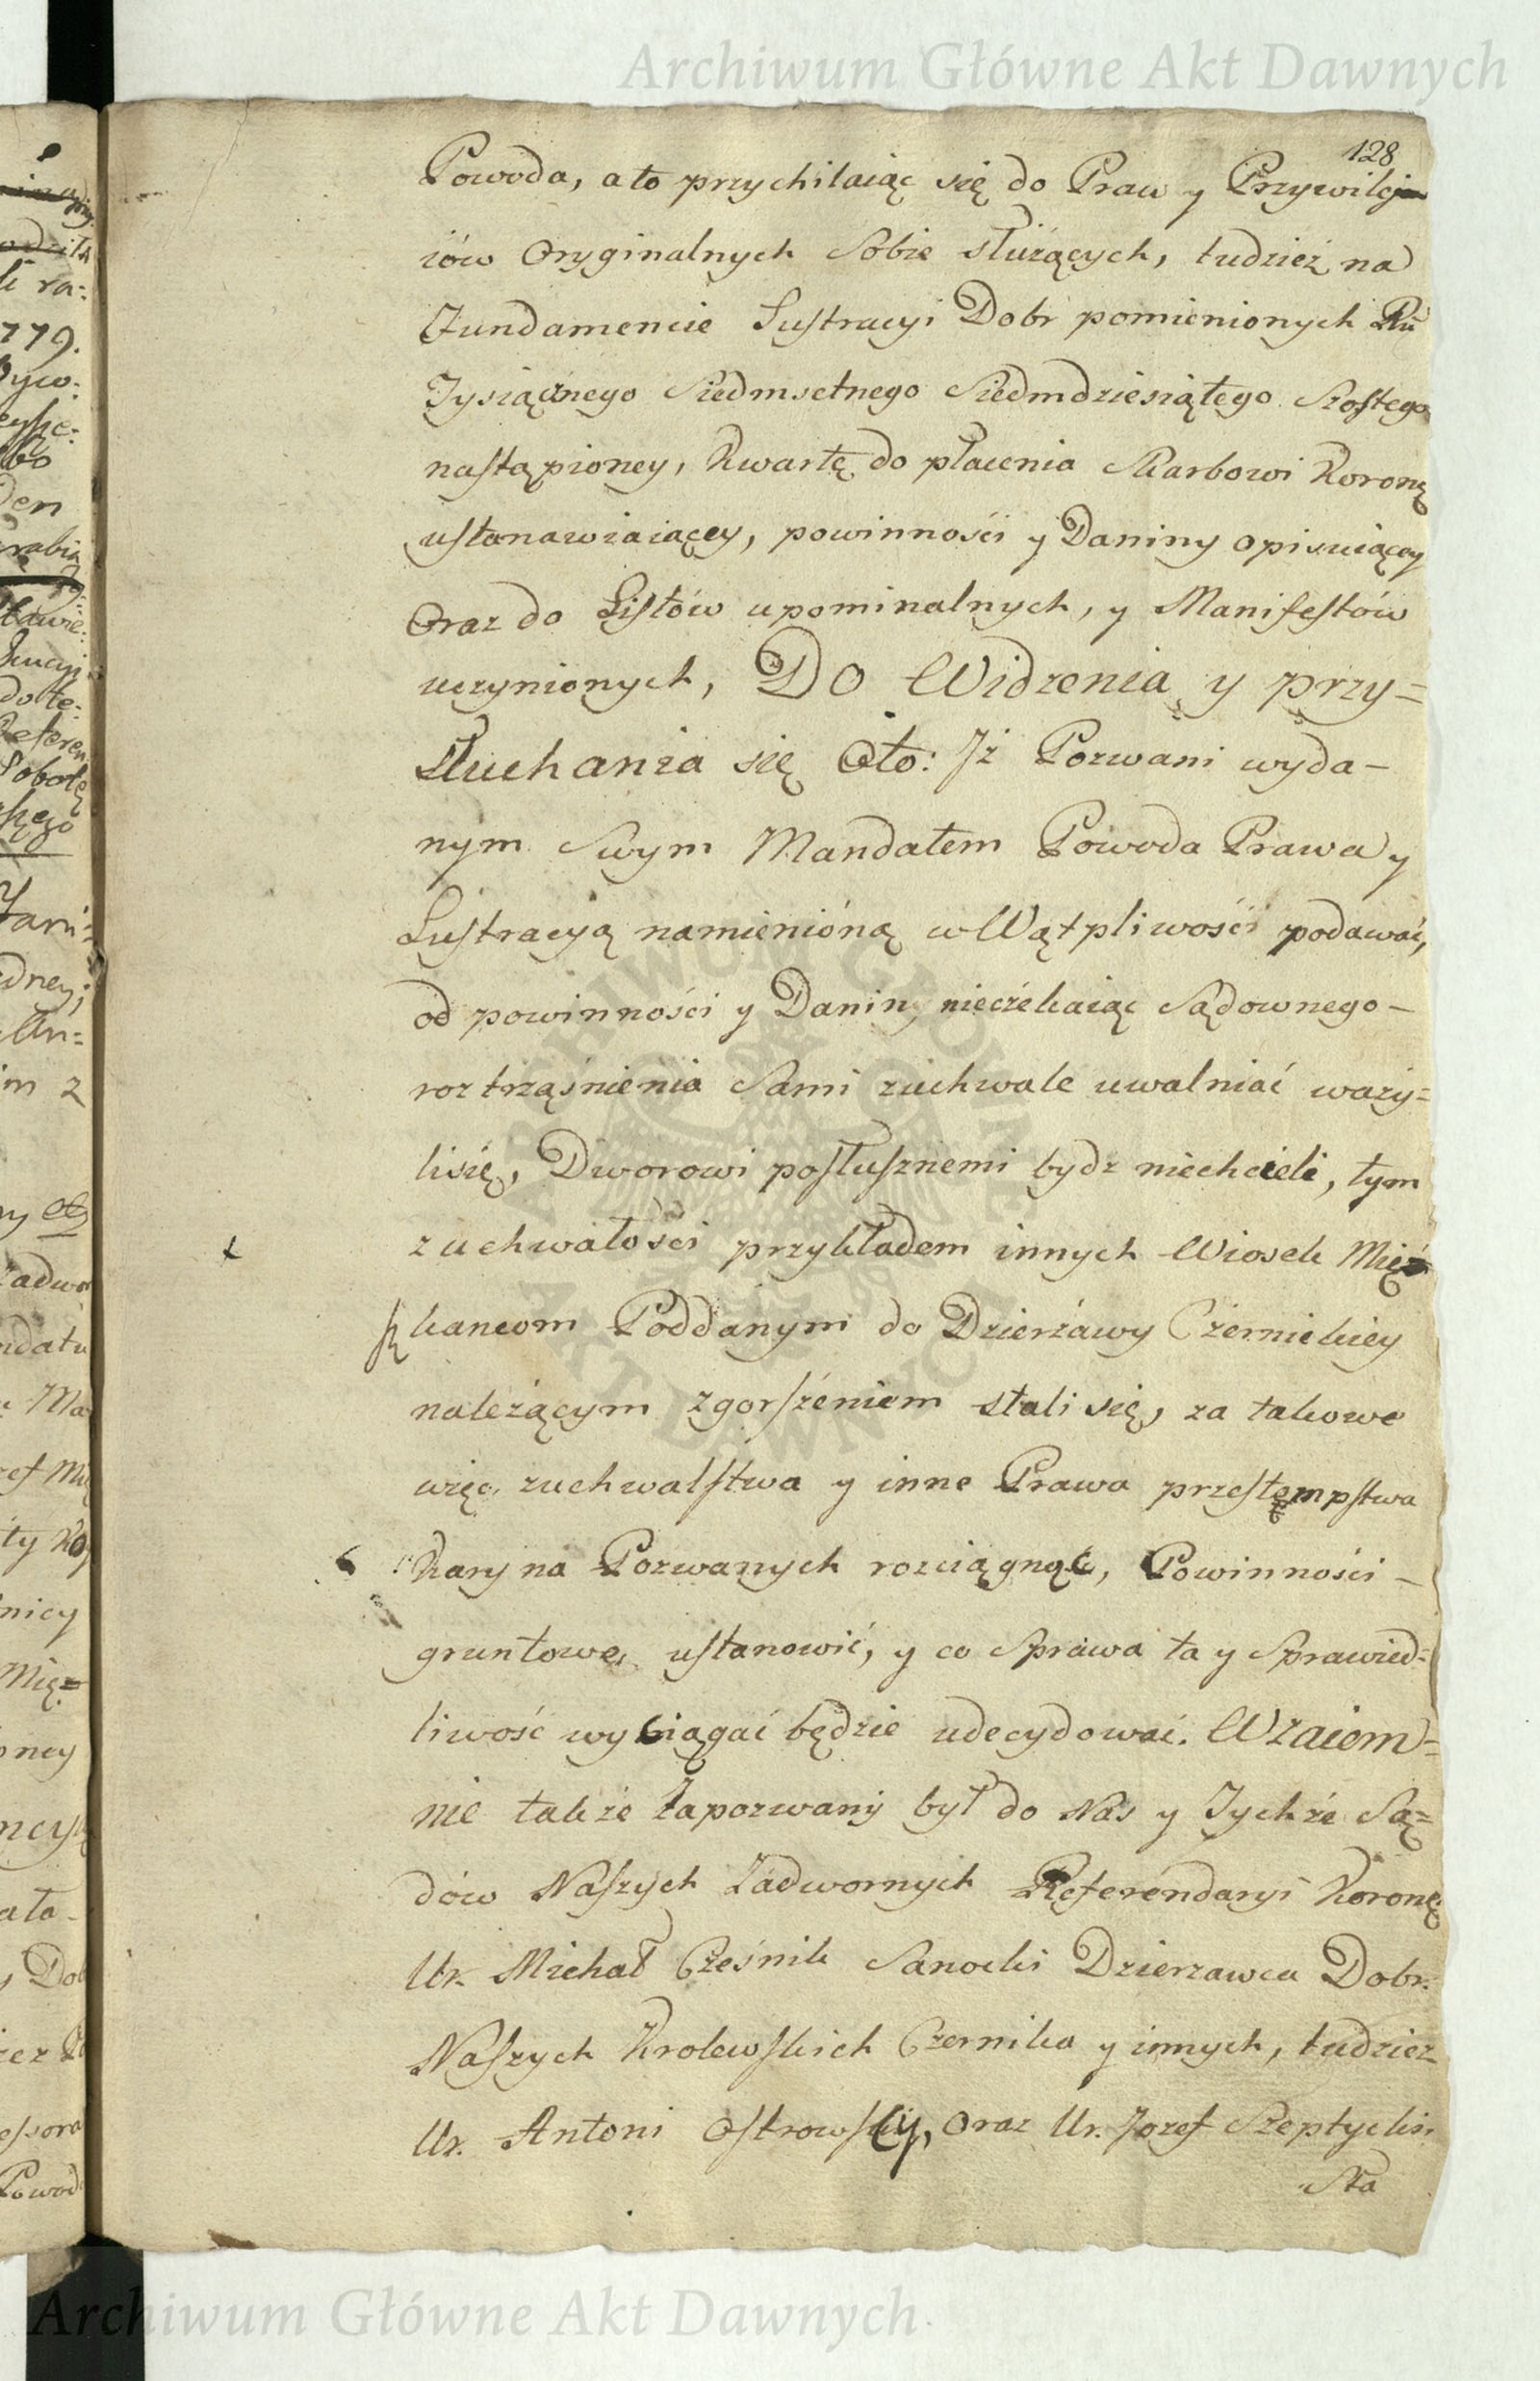 Archiwum Główne Akt Dawnych
128
Powoda, a to przychilaiąc się do Praw y Przywilej
iów Oryginalnych Sobie służących, tudzież na
Fundamencie Lustracyi Dobr pomienionych Ru
Tysiącznego Siedmsetnego Siedmdziesiątego Szostego
nastąpioney, Kwartę do płacenia Skarbowi Koronę
ustanawiaiącey, powinności y Daniny opisuiącey
Oraz do Listów upominalnych, y Manifestów
uczynionych, Do Widzenia y przy=
słuchania się Oto: Iż Pozwani wyda-
nym Swym Mandatem Powoda Prawa y
Lustracyą namienióną w Wątpliwości podawać,
od powinności y Danin, nieczekaiąc Sądownego-
roztrząśnienia Sami zuchwale uwalniać waży=
lisię, Dworowi posłusznemi bydz niechcieli, tym
zuchwałości przykładem innych Wiosek Mięż
kancom Poddanym do Dzierżawy Czernickiey
należącym zgorszeniem stali się, za takowe
więc zuchwalstwa y inne Prawa przestęmpstwa
Kary na Pozwanych rozciągnąć, Powinności-
gruntowe ustanowić, y co Sprawa ta y Sprawied=
liwość wyciągać będzie udecydować. Wzaiem=
nie także Zapozwany był do Nas y Tychże Są=
dów Naszych Zadwornych Referendaryi Koronę
Ur. Michał Cześnik Sanocki Dzierzawca Dobr.
Naszych Krolewskich Czernika y innych, tudziez
Ur. Antoni Ostrowsky, Oraz Ur. Jozef Szeptycki
Sta
Archiwum Główne Akt Dawnych